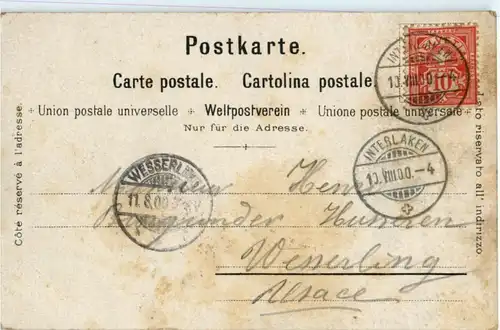 Postkarte.
Carte postale. Cartolina postale.
Union postale universelle + Weltpostverein + Unione postale universale
Nur für die Adresse.
Côté réservé à l'adresse.
Lato riservato all' indirizzo
10
INTERLAKEN
13.VIII.00.-4
INTERLAKEN
13.VIII.00.-4
WESSERLI
11.8.00
Monsieur Henri
Hussren
Wesserling
Alsace